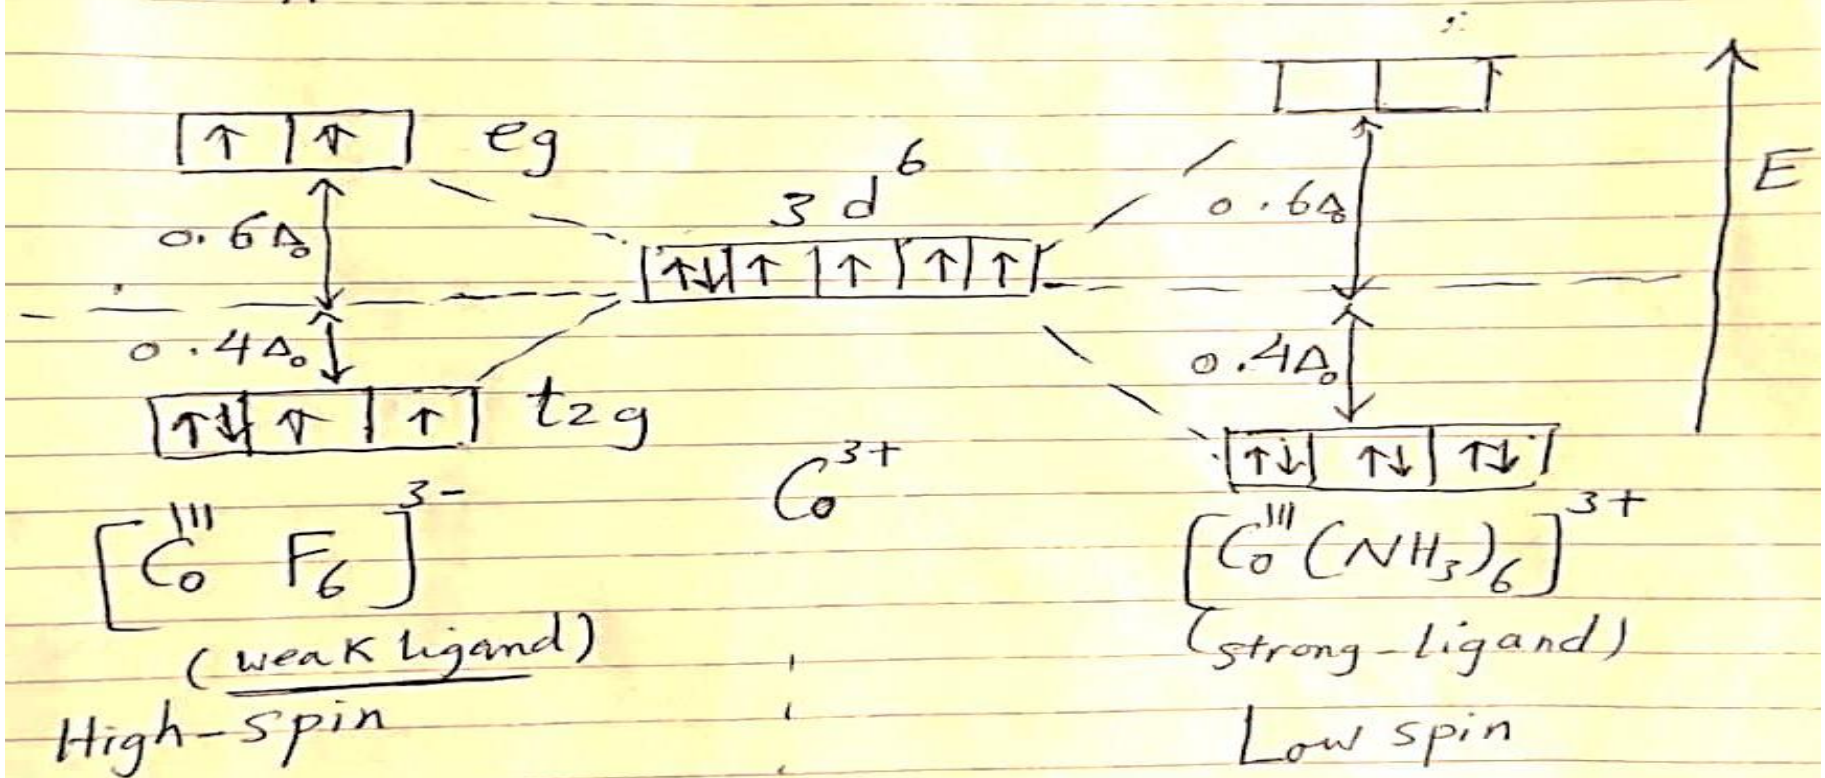 ↑ ↑ eg
0.6Δ₀
0.4Δ₀
↑↓ ↑ ↑ t2g
[Co^III F6]^3-
(weak ligand)
High-spin
3d^6
↑↓ ↑ ↑ ↑ ↑
Co^3+
0.6Δ₀
0.4Δ₀
↑↓ ↑↓ ↑↓
[Co^III (NH3)6]^3+
(strong-ligand)
Low spin
E